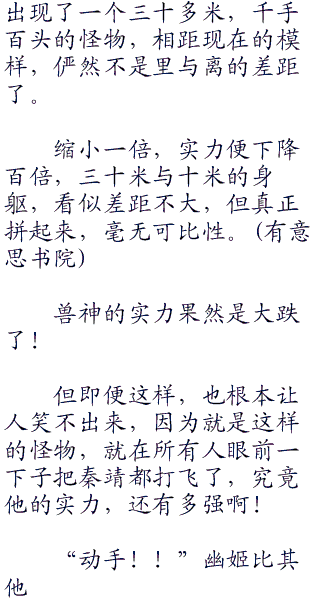 出现了一个三十多米，千手
百头的怪物，相距现在的模
样，俨然不是里与离的差距
了。
缩小一倍，实力便下降
百倍，三十米与十米的身
躯，看似差距不大，但真正
拼起来，毫无可比性。(有意
思书院)
兽神的实力果然是大跌
了！
但即便这样，也根本让
人笑不出来，因为就是这样
的怪物，就在所有人眼前一
下子把秦靖都打飞了，究竟
他的实力，还有多强啊！
“动手！！”幽姬比其
他